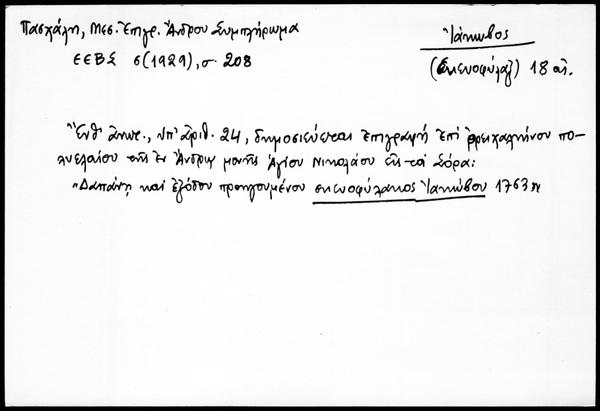 Πασχάλη, Μεσ. Ἐπιγρ. Ἄνδρου Συμπλήρωμα
ΕΕΒΣ 6 (1929), σ. 208
Ἰάκωβος
(Σκευοφύλαξ) 18 αἰ.
Ἔνθ' ἀνωτ., ὑπ' ἀριθ. 24, δημοσιεύεται ἐπιγραφή ἐπί ὀρειχαλκίνου πο-
λυελαίου τῆς ἐν Ἄνδρῳ μονῆς Ἁγίου Νικολάου εἰς τά Σόρα:
"Δαπάνῃ καί ἐξόδου προηγουμένου σκευοφύλακος Ἰακώβου 1763"